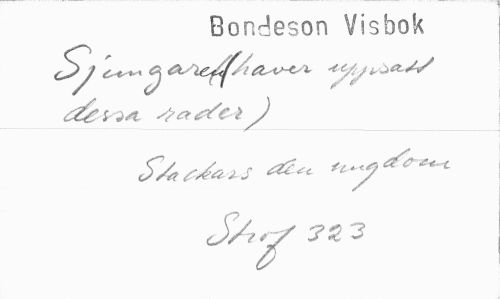 Bondeson Visbok
Sjungaren (haver uppsatt
dessa rader)
Stackars den ungdom
Strof 323